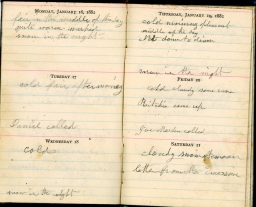 MONDAY, JANUARY 16, 1882
fair in the middle of the day
quite warm
snow in the night
TUESDAY 17
cold fair afternoon
Daniel called
WEDNESDAY 18
cold
snow in the night
THURSDAY, JANUARY 19, 1882
cold morning pleasant
middle of the day
snow in the night
FRIDAY 20
cold cloudy some snow
came up
called
SATURDAY 21
cloudy snow
letter from the